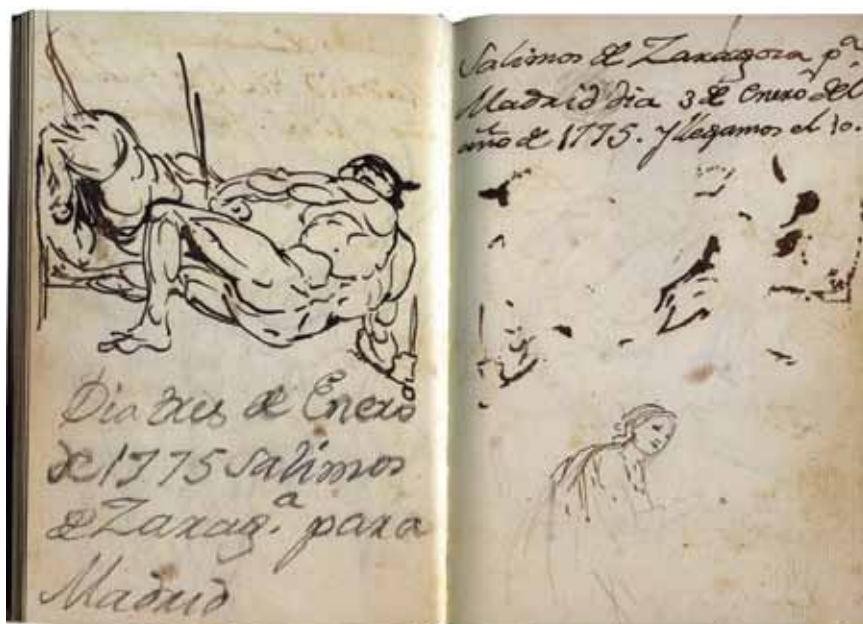 Dia tres de Enero
de 1775 salimos
de Zarag.ª para
Madrid
Salimos de Zaragoza pª.
Madrid dia 3 de Enero del
año de 1775. y llegamos el 10.